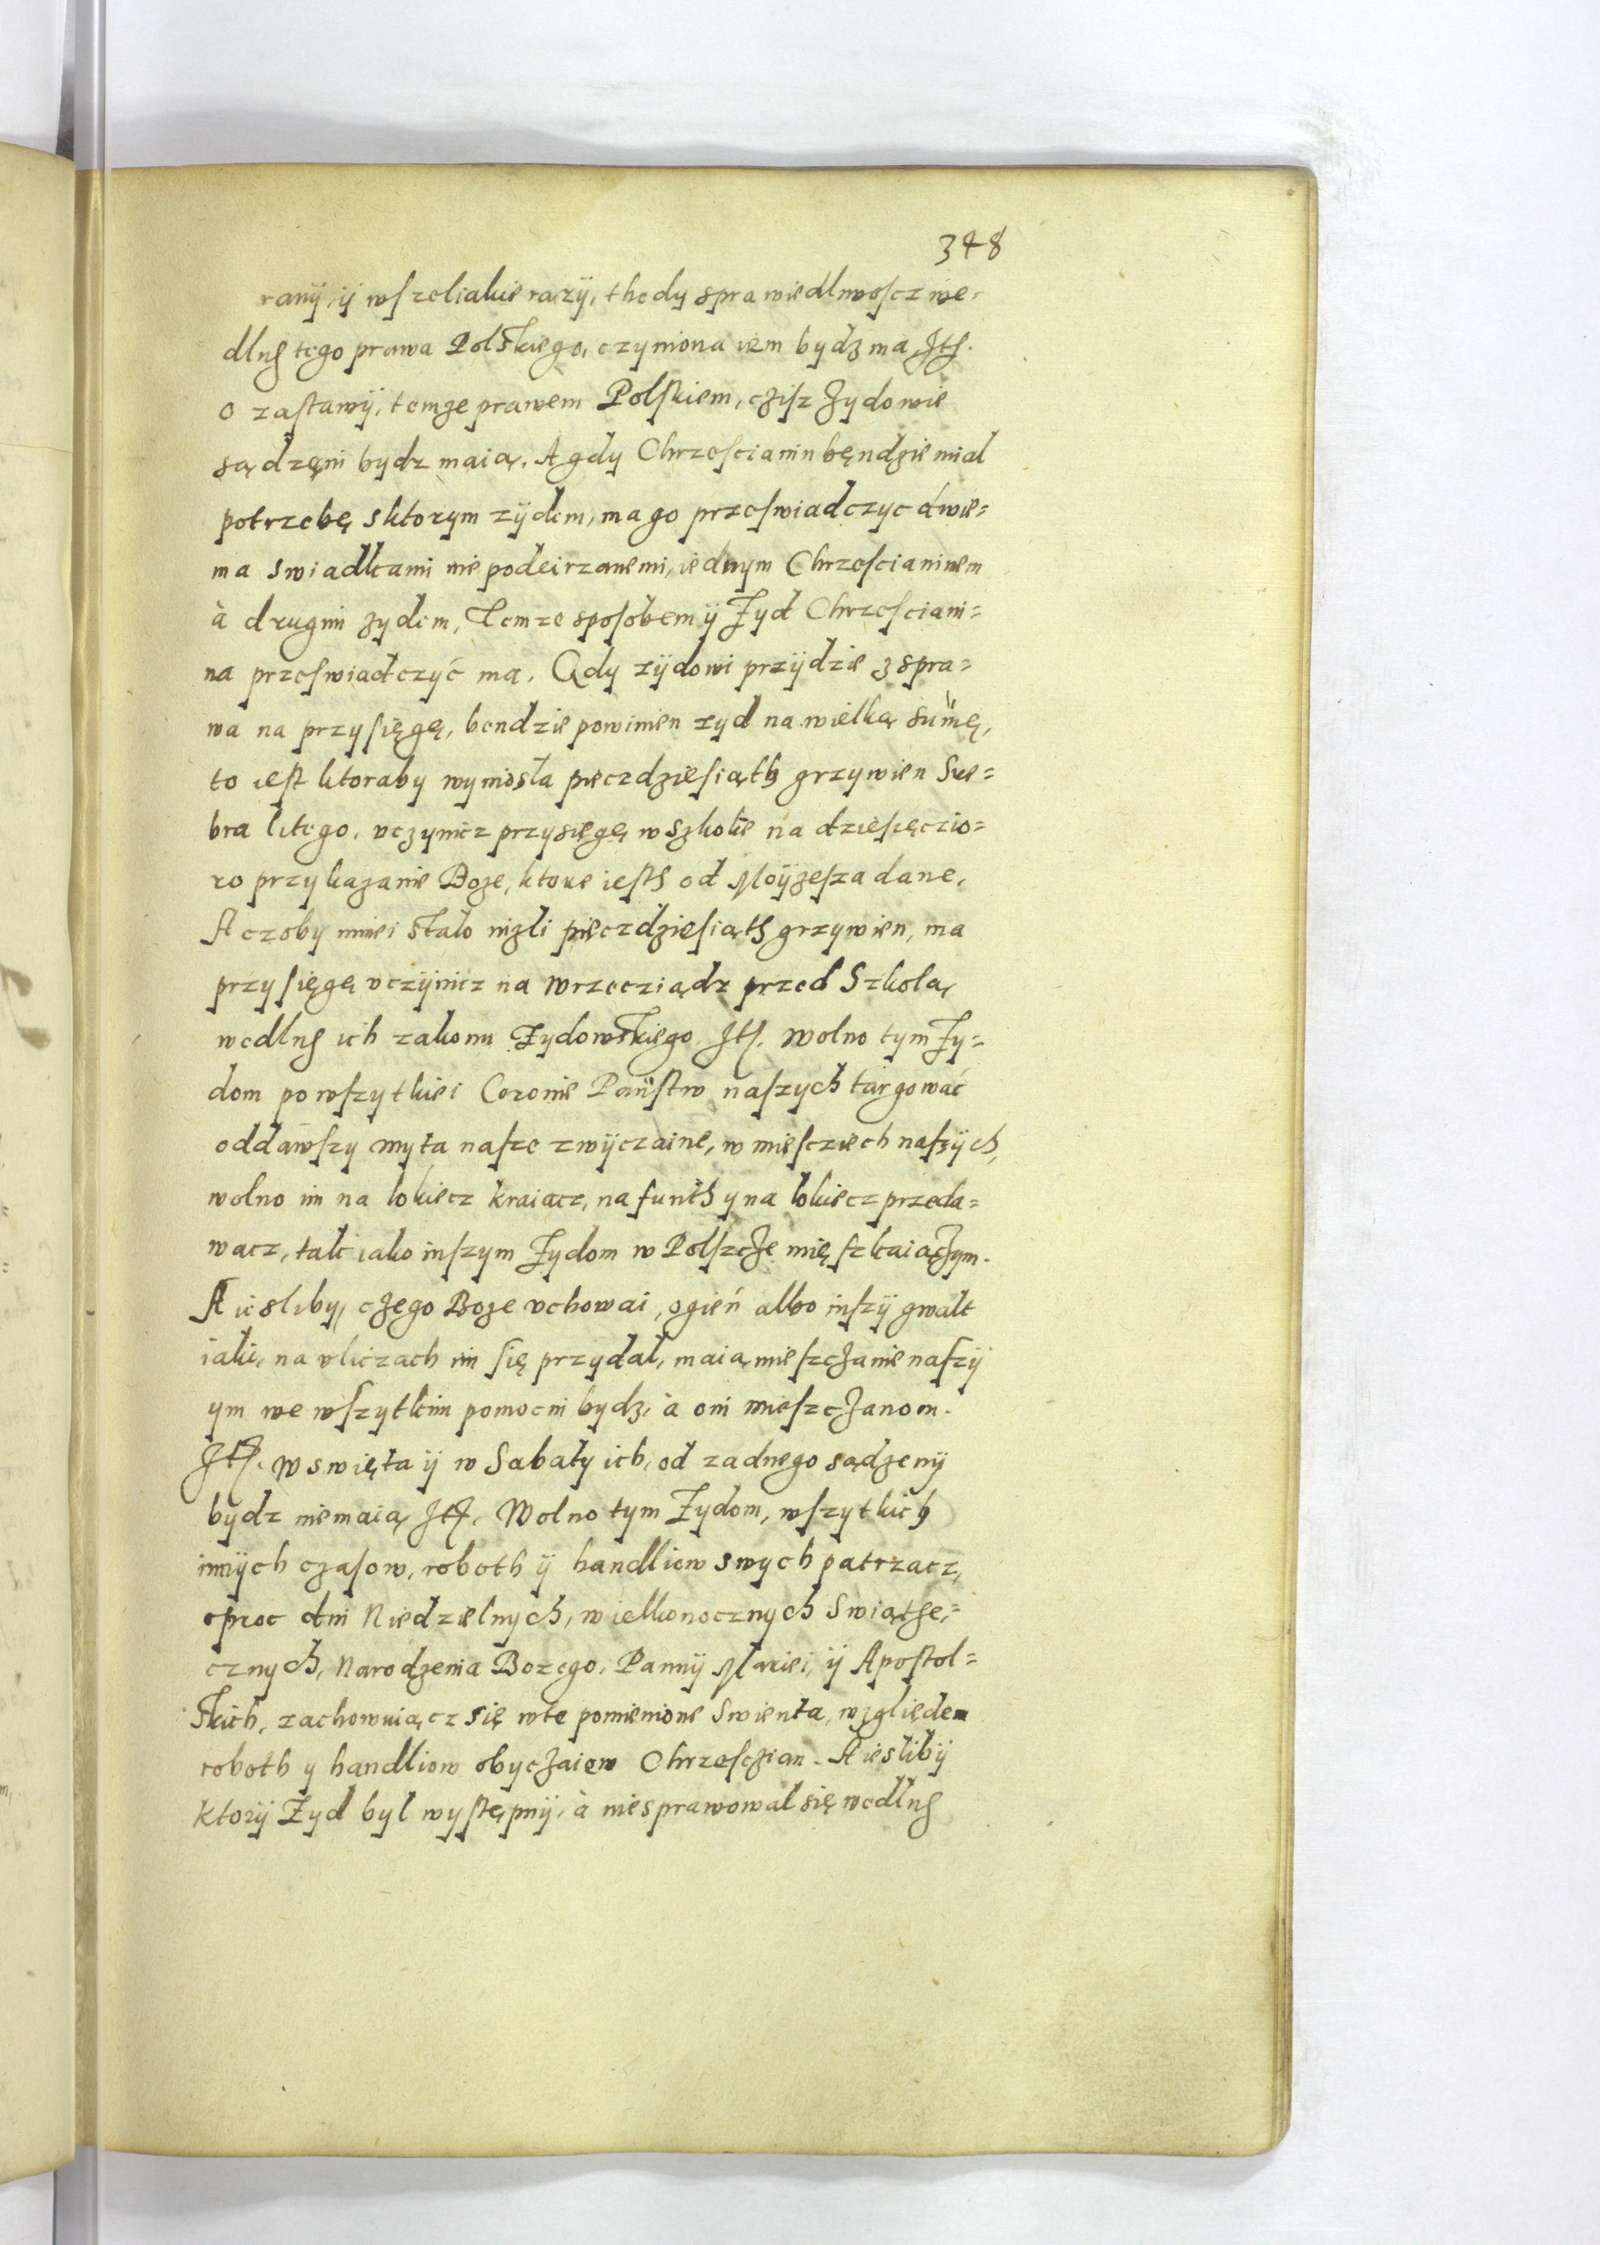 348
ranÿ, ÿ wszeliakie razÿ, thedy sprawiedlwoscz we=
dlug tego prawa Polskiego, czyniona iem bydz ma Ite.
o zastawÿ, temze prawem Polskiem, czisz Zydowie
sądzęni bydz maią. A gdy Chrzescianin bęndzie mial
potrzebę sktorym zÿdem, ma go przeswiadczyc dwie=
ma swiadkami nie podeirzanemi, iednym Chrzescianinem
à drugim zydem, Temze sposobem ÿ Zyd Chrzesciani=
na przeswiadczyć ma. Gdy zÿdowi przÿdzie z spra=
wa na przysięgę, bendzie powinien zyd na wielką sum̃ę,
to iest ktoraby wyniosła pieczdziesiąth grzywien Sre=
bra litego, vczynicz przysięgę w szkole na dziesięczio=
ro przykazanie Boze, ktore iesth od Moÿzesza dane,
A czoby mniei stalo nizli pieczdziesiąth grzywien, ma
przysięgę vczÿnicz na wrzecziądz przed Szkolą,
wedlug ich zakonu Zydowskiego. Ite. Wolno tym Zy=
dom po wszytkiei Coronie Państw naszych targować
oddawszy myta nasze zwÿczaine, w miescziech naszÿch,
wolno im na lokiecz kraiacz, na funth y na lokiecz przeda=
wacz, tak iako inszym Zydom w Polszcze mięszkaiączym.
A iesliby, czego Boze vchowai, ogień albo inszÿ gwalt
iaki, na vliczach im się przydal, maią mieszczanie naszÿ
ym we wszytkim pomocni bydz, à oni mieszczanom.
Ite. W swięta ÿ w Sabaty ich, od zadnego sądzenÿ
bydz niemaią Ite. Wolno tym Zydom, wszytkich
innÿch czasow, roboth ÿ handliow swych patrzacz,
oproc dni Niedzielnych, wielkonocznych Swiąthe,=
cznych, Narodzenia Bozego, Pannÿ Mariei, ÿ Apostol=
skich, zachowuiącz się wte pomienione Swienta, względem
roboth y handliow obyczaiem Chrzesczian. A ieslibÿ
ktorÿ Zyd byl występnÿ, à niesprawowal się wedlug